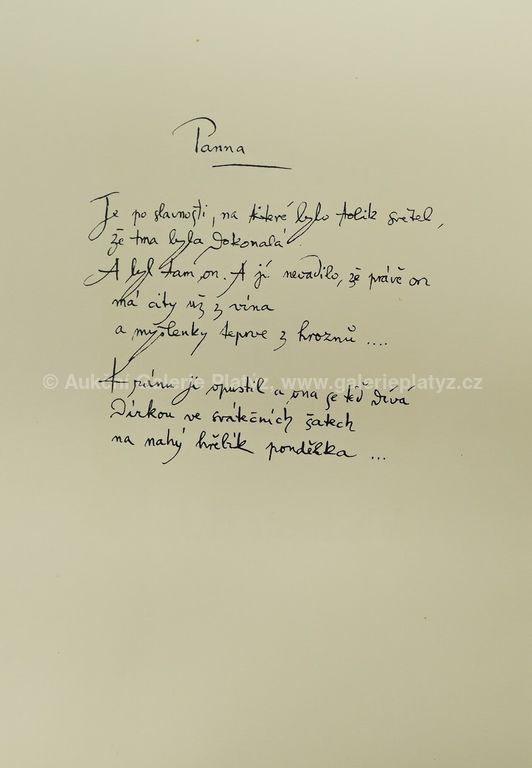 Panna
Je po slavnosti, na které bylo tolik světel,
že tma byla dokonalá.
A byl tam on. A jí nevadilo, že právě on
má city už z vína
a myšlenky teprve z hroznů ....
K ránu ji opustil a ona se teď dívá
© Aukční Galerie Platýz, www.galerieplatyz.cz
dírkou ve svátečních šatech
na nahý hřebík pondělka ...